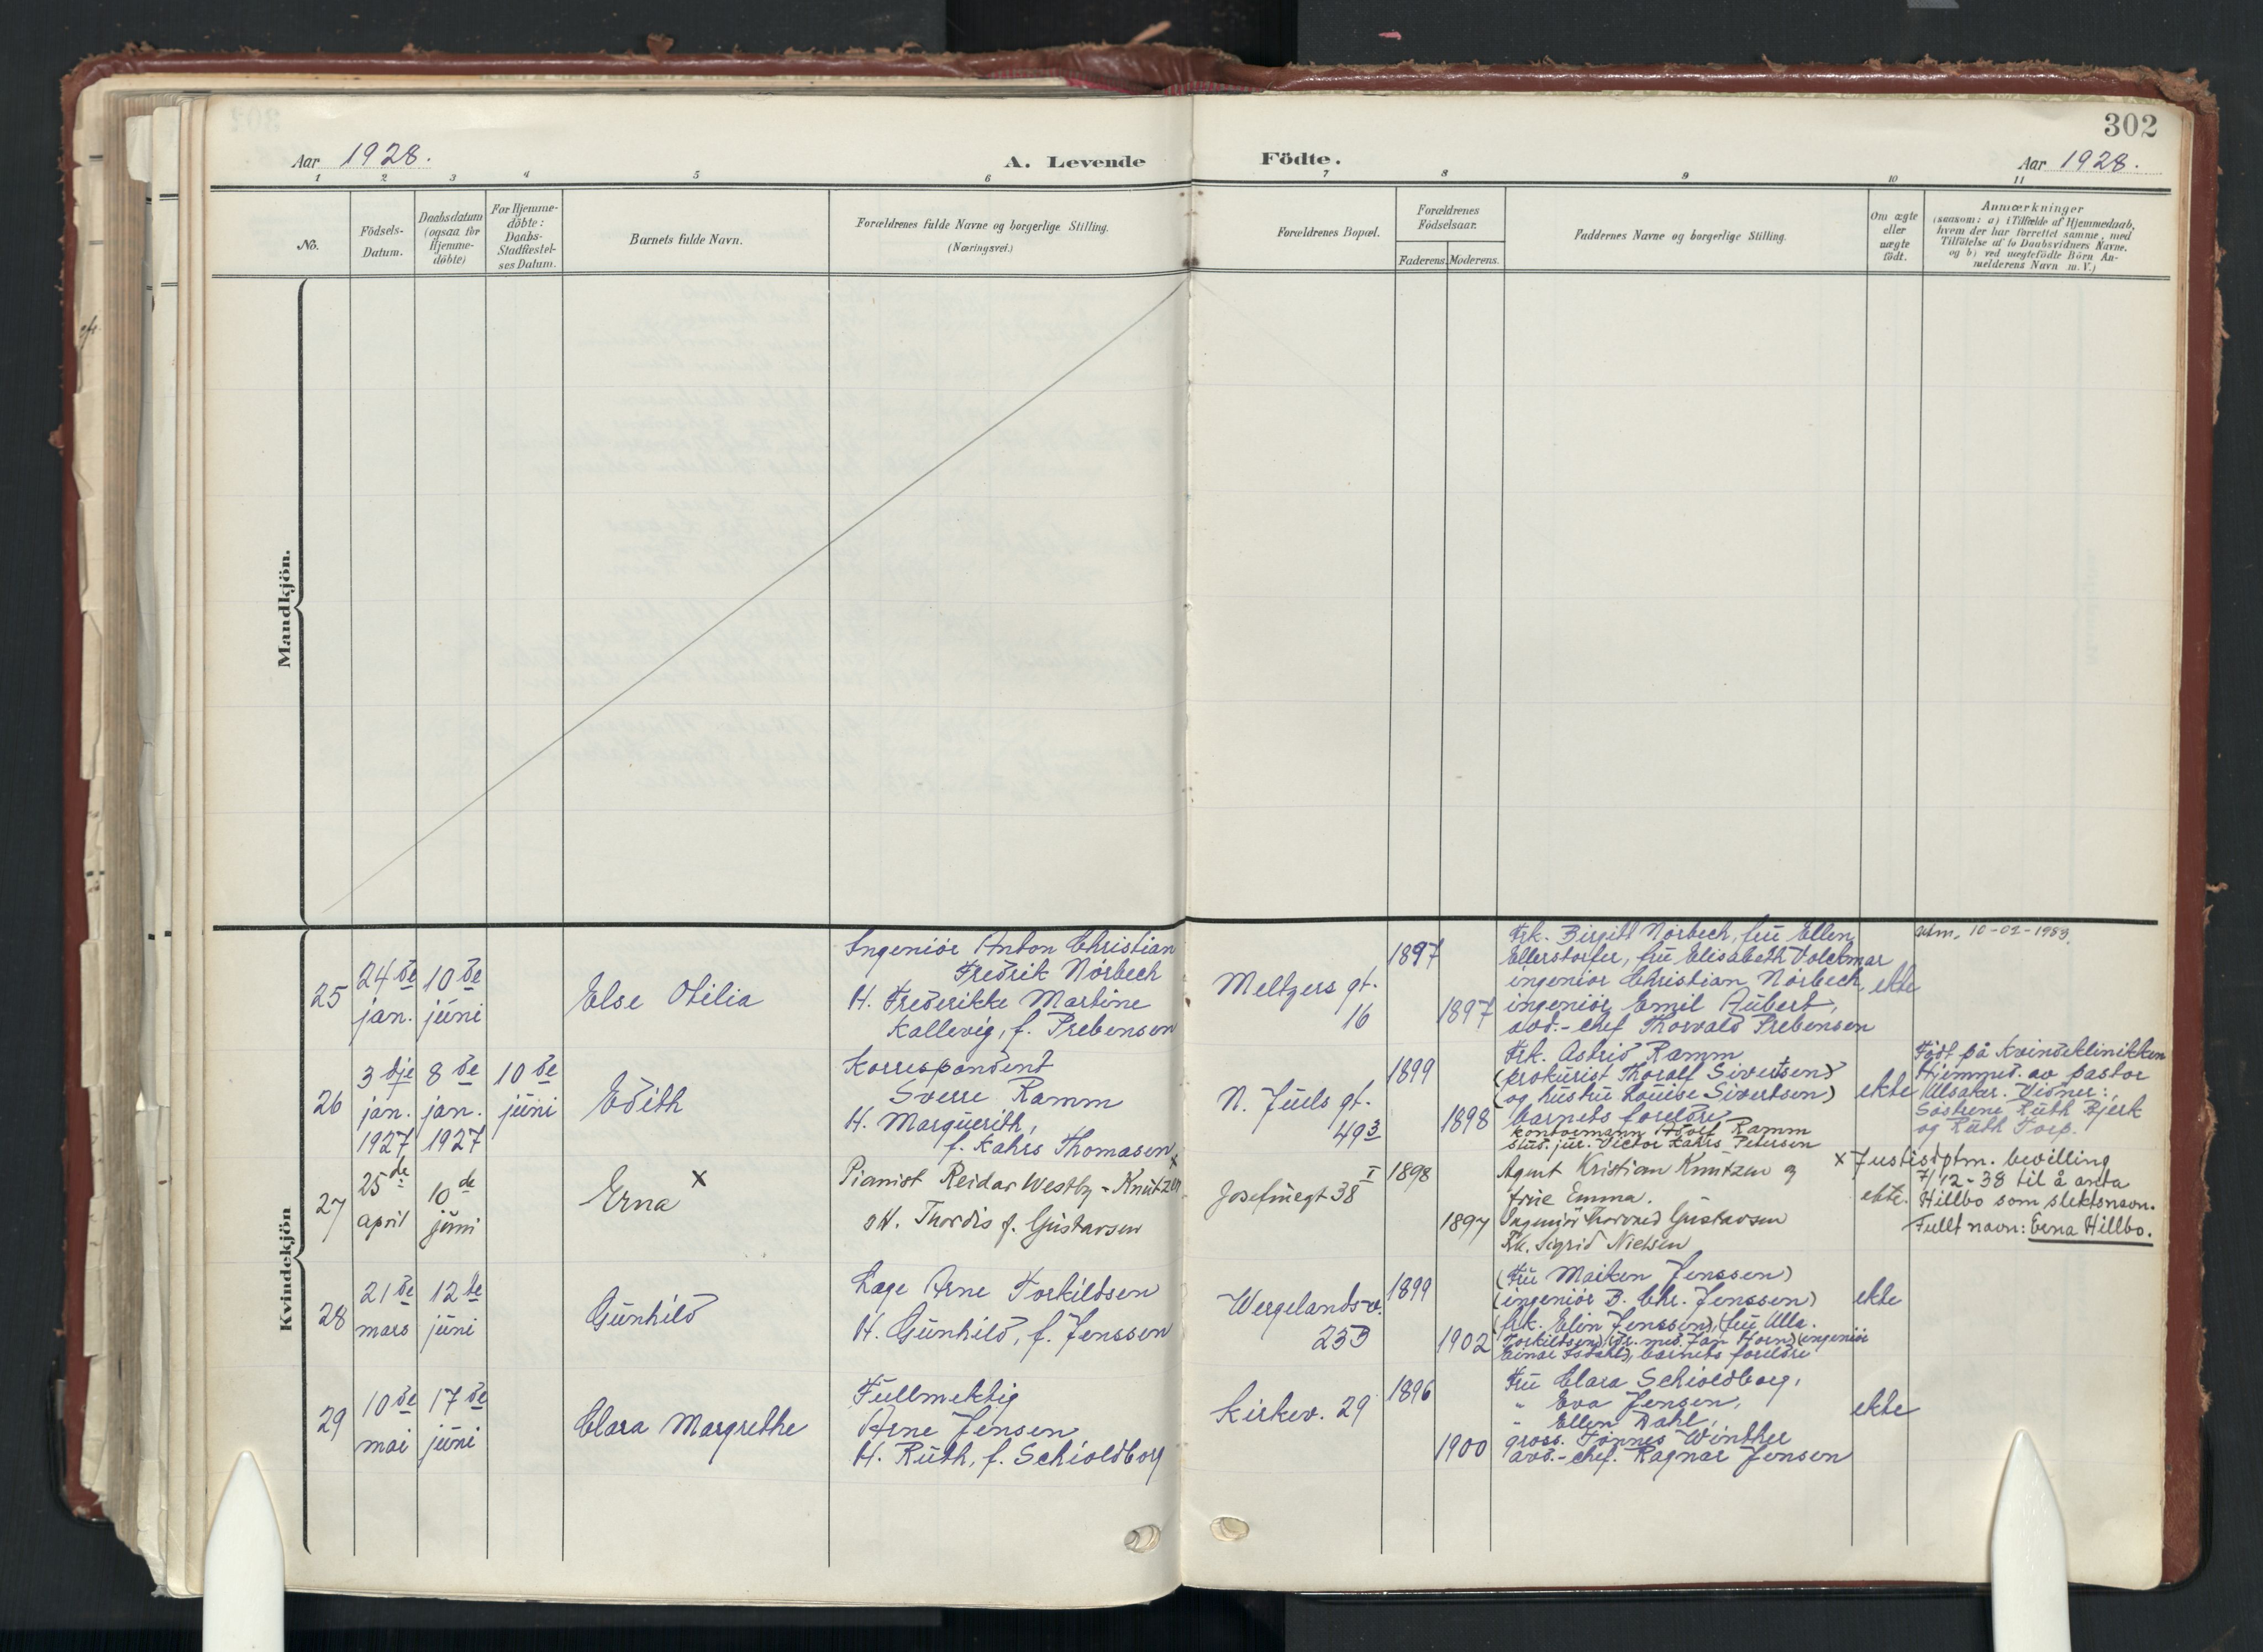 302
Aar 1928.
A. Levende Födte.
Aar 1928.
1 2 3 4 5 6 7 8 9 10 11
No.
Födsels-
Datum.
Daabsdatum
(ogsaa for
Hjemme-
döbte)
For Hjemme-
döbte:
Daabs-
Stadfæstel-
ses Datum.
Barnets fulde Navn.
Forældrenes fulde Navne og borgerlige Stilling.
(Næringsvei.)
Forældrenes Bopæl.
Forældrenes
Födselsaar.
Faderens. Moderens.
Faddernes Navne og borgerlige Stilling.
Om ægte
eller
uægte
födt.
Anmærkninger
(saasom: a) i Tilfælde af Hjemmedaab,
hvem der har forrettet samme, med
Tilföielse af to Daabsvidners Navne,
og b) ved uegtefödte Börn An-
melderens Navn m. V.)
Mandkjön.
Kvindekjön
25
24de
jan.
10de
juni
Else Otilia
Ingeniör Anton Christian
Fredrik Nörbech
H. Frederikke Martine
Kallevig, f. Prebensen
Meltzers gt.
16
1897
1897
Frk. Birgitt Nörbech, fru Ellen
Ellerstorfer, fru Elisabeth Volckmar
ingeniör Christian Nörbech,
ingeniör Emil Aubert,
avd.-chef Thorvald Prebensen
ekte
utm. 10-02-1983.
26
3dje
jan.
1927
8de
jan.
1927
10de
juni
Edith
Korrespondent
Sverre Ramm
H. Marguerith,
f. Kahrs Thomasen
N. Juels gt.
49 3
1899
1898
Frk. Astrid Ramm
(prokurist Thoralf Sivertsen)
(og hustru Louise Sivertsen)
barnets foreldre
kontormann Adolf Ramm
stud. jur. Victor Kahrs Petersen
ekte
Född på Kvindeklinikken
Hjemmed. av pastor
Ulsaker. Vidner:
Söstrene Ruth Bjerk
og Ruth Torp.
27
25de
april
10de
juni
Erna x
Pianist Reidar Westby-Knutzen x
o H. Thordis f. Gustavsen
Josefinegt 38 I
1898
1897
Agent Kristian Knutzen og
frue Emma.
Ingeniör Thorvald Gustavsen
Frk. Sigrid Nielsen
ekte.
x Justisdptm. bevilling
7/12-38 til å anta
Hillbo som slektsnavn.
Fullt navn: Erna Hillbo.
28
21de
mars
12te
juni
Gunhild
Læge Arne Torkildsen
H. Gunhild, f. Jenssen
Wergelands-v.
23B
1899
1902
(Fru Maiken Jenssen)
(ingeniör B. Chr. Jenssen)
(frk. Elin Jenssen), (fru Ulla
Torkildsen), (dr. med. Jan Horn) (ingeniör
Einar Isdahl), barnets foreldre
ekte
29
10de
mai
17de
juni
Clara Margrethe
Fullmektig
Arne Jensen
H. Ruth, f. Schioldborg
Kirkev. 29
1896
1900
Fru Clara Schioldborg,
" Eva Jensen,
" Ellen Dahl,
gross. Tönnes Winther
avd.-chef. Ragnar Jensen
ekte